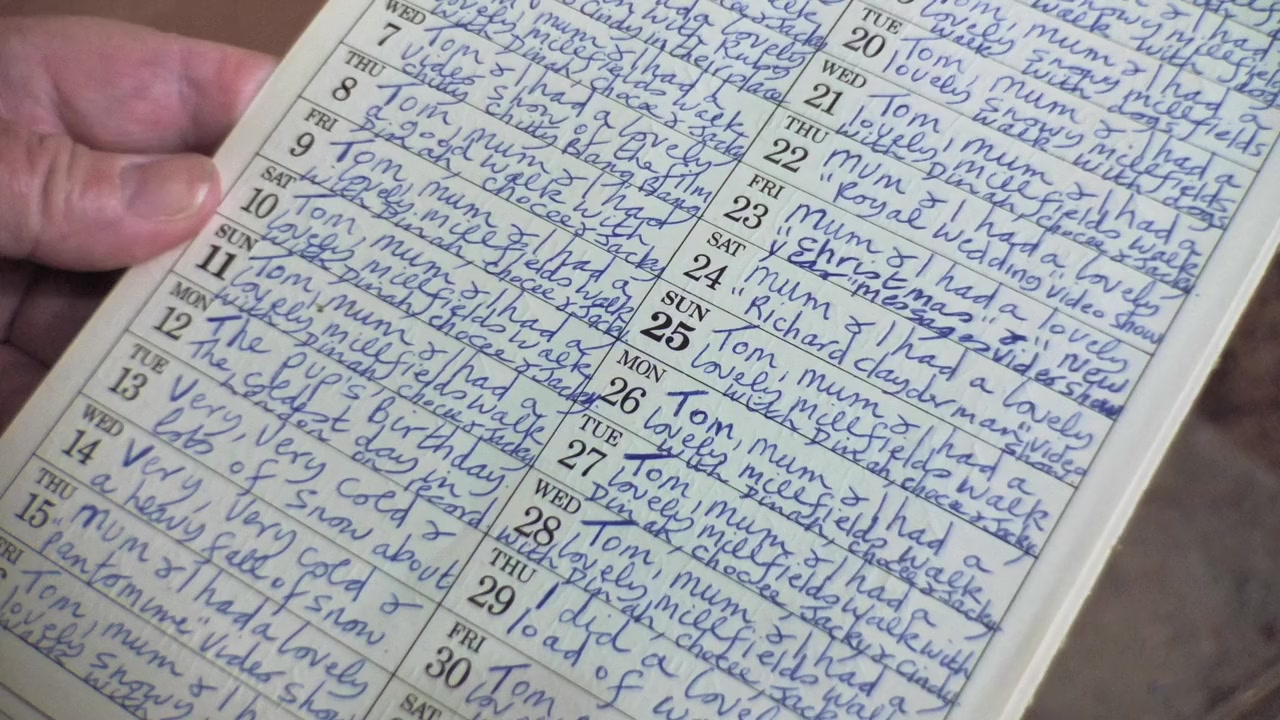 WED
7
Tom & I had a lovely
video show of the film
chitty chitty Bang Bang
THU
8
Tom, mum & I had
a good walk with
Dinah, chocee & Jacky
FRI
9
Tom, mum & I had a
lovely millfields walk
with Dinah chocee & Jacky
SAT
10
Tom, mum & I had a
lovely millfields walk
with Dinah chocee & Jacky
SUN
11
Tom mum & I had a
lovely millfields walk
with Dinah chocee & Jacky
MON
12
The Pup's Birthday
The coldest day in
record
TUE
13
Very, very cold &
lots of snow about
WED
14
Very, very cold &
a heavy fall of snow
THU
15
mum & I had a lovely
"pantomime" video show
FRI
Tom, mum & I h
lovely snowy
walk with
TUE
20
Tom, mum & I had a
lovely snowy millfields
walk with dogs
WED
21
Tom, mum & I had a
lovely, millfields walk
with Dinah chocee & Jacky
THU
22
Mum & I had a lovely
"Royal wedding" video show
FRI
23
Mum & I had a lovely
"Christmas" & "new
year message" video show
SAT
24
mum & I had a lovely
"Richard clayderman" video
show
SUN
25
Tom, mum & I had a
lovely millfields walk
with Dinah chocee & Jacky
MON
26
Tom, mum & I had a
lovely millfields walk
with Dinah, chocee & Jacky
TUE
27
Tom, mum & I had a
lovely millfields walk with
Dinah chocee Jacky & Cindy
WED
28
Tom, mum & I had a
lovely millfields walk
with Dinah chocee Jack
THU
29
I did a lovel
load of w
FRI
30
Tom
lov
SAT